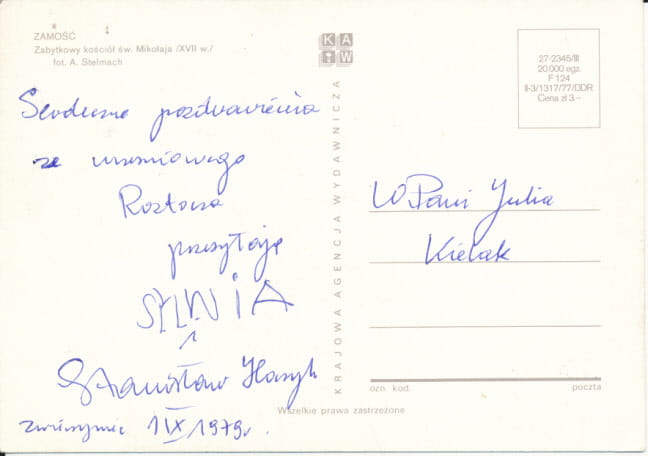 ZAMOŚĆ
Zabytkowy kościół św. Mikołaja /XVII w./
fot. A. Stelmach
KAW
27-2345/III
20 000 egz.
F 124
II-3/1317/77/DDR
Cena zł 3.—
Serdeczne pozdrowienia
ze wrześniowego
Roztocza
przesyłają
SYLWiA
i
Stanisław
Zwierzyniec 1 IX 1979r.
KRAJOWA AGENCJA WYDAWNICZA
W.Pani Julia
Kielak
ozn. kod.
poczta
Wszelkie prawa zastrzeżone